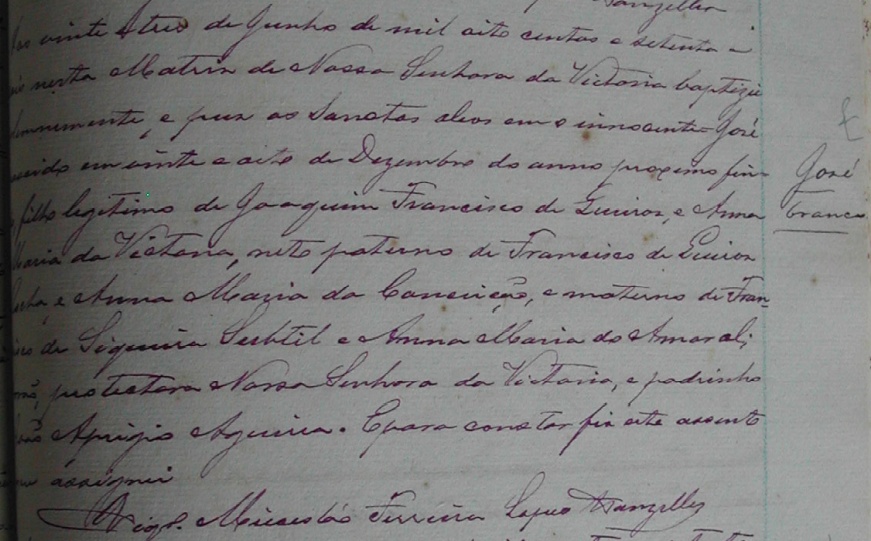 vinte e tres de Junho de mil oito centos e setenta e
nesta Matriz de Nossa Senhora da Victoria baptizei
solemnemente, e puz os Sanctos oleos em o innocente José
nascido em vinte e oito de Dezembro do anno proximo fin-
filho legitimo de Joaquim Francisco de Queiroz, e Anna
Maria da Victoria, neto paterno de Francisco de Queiroz
e Anna Maria da Conceição, e materno de Fran-
cisco de Siqueira Subtil e Anna Maria do Amaral;
protectora Nossa Senhora da Victoria, e padrinho
João Aprigio Aguirra. E para constar fiz este assento
assignei
Vigº. Ferreira Lopes Wanzeller
José
branco